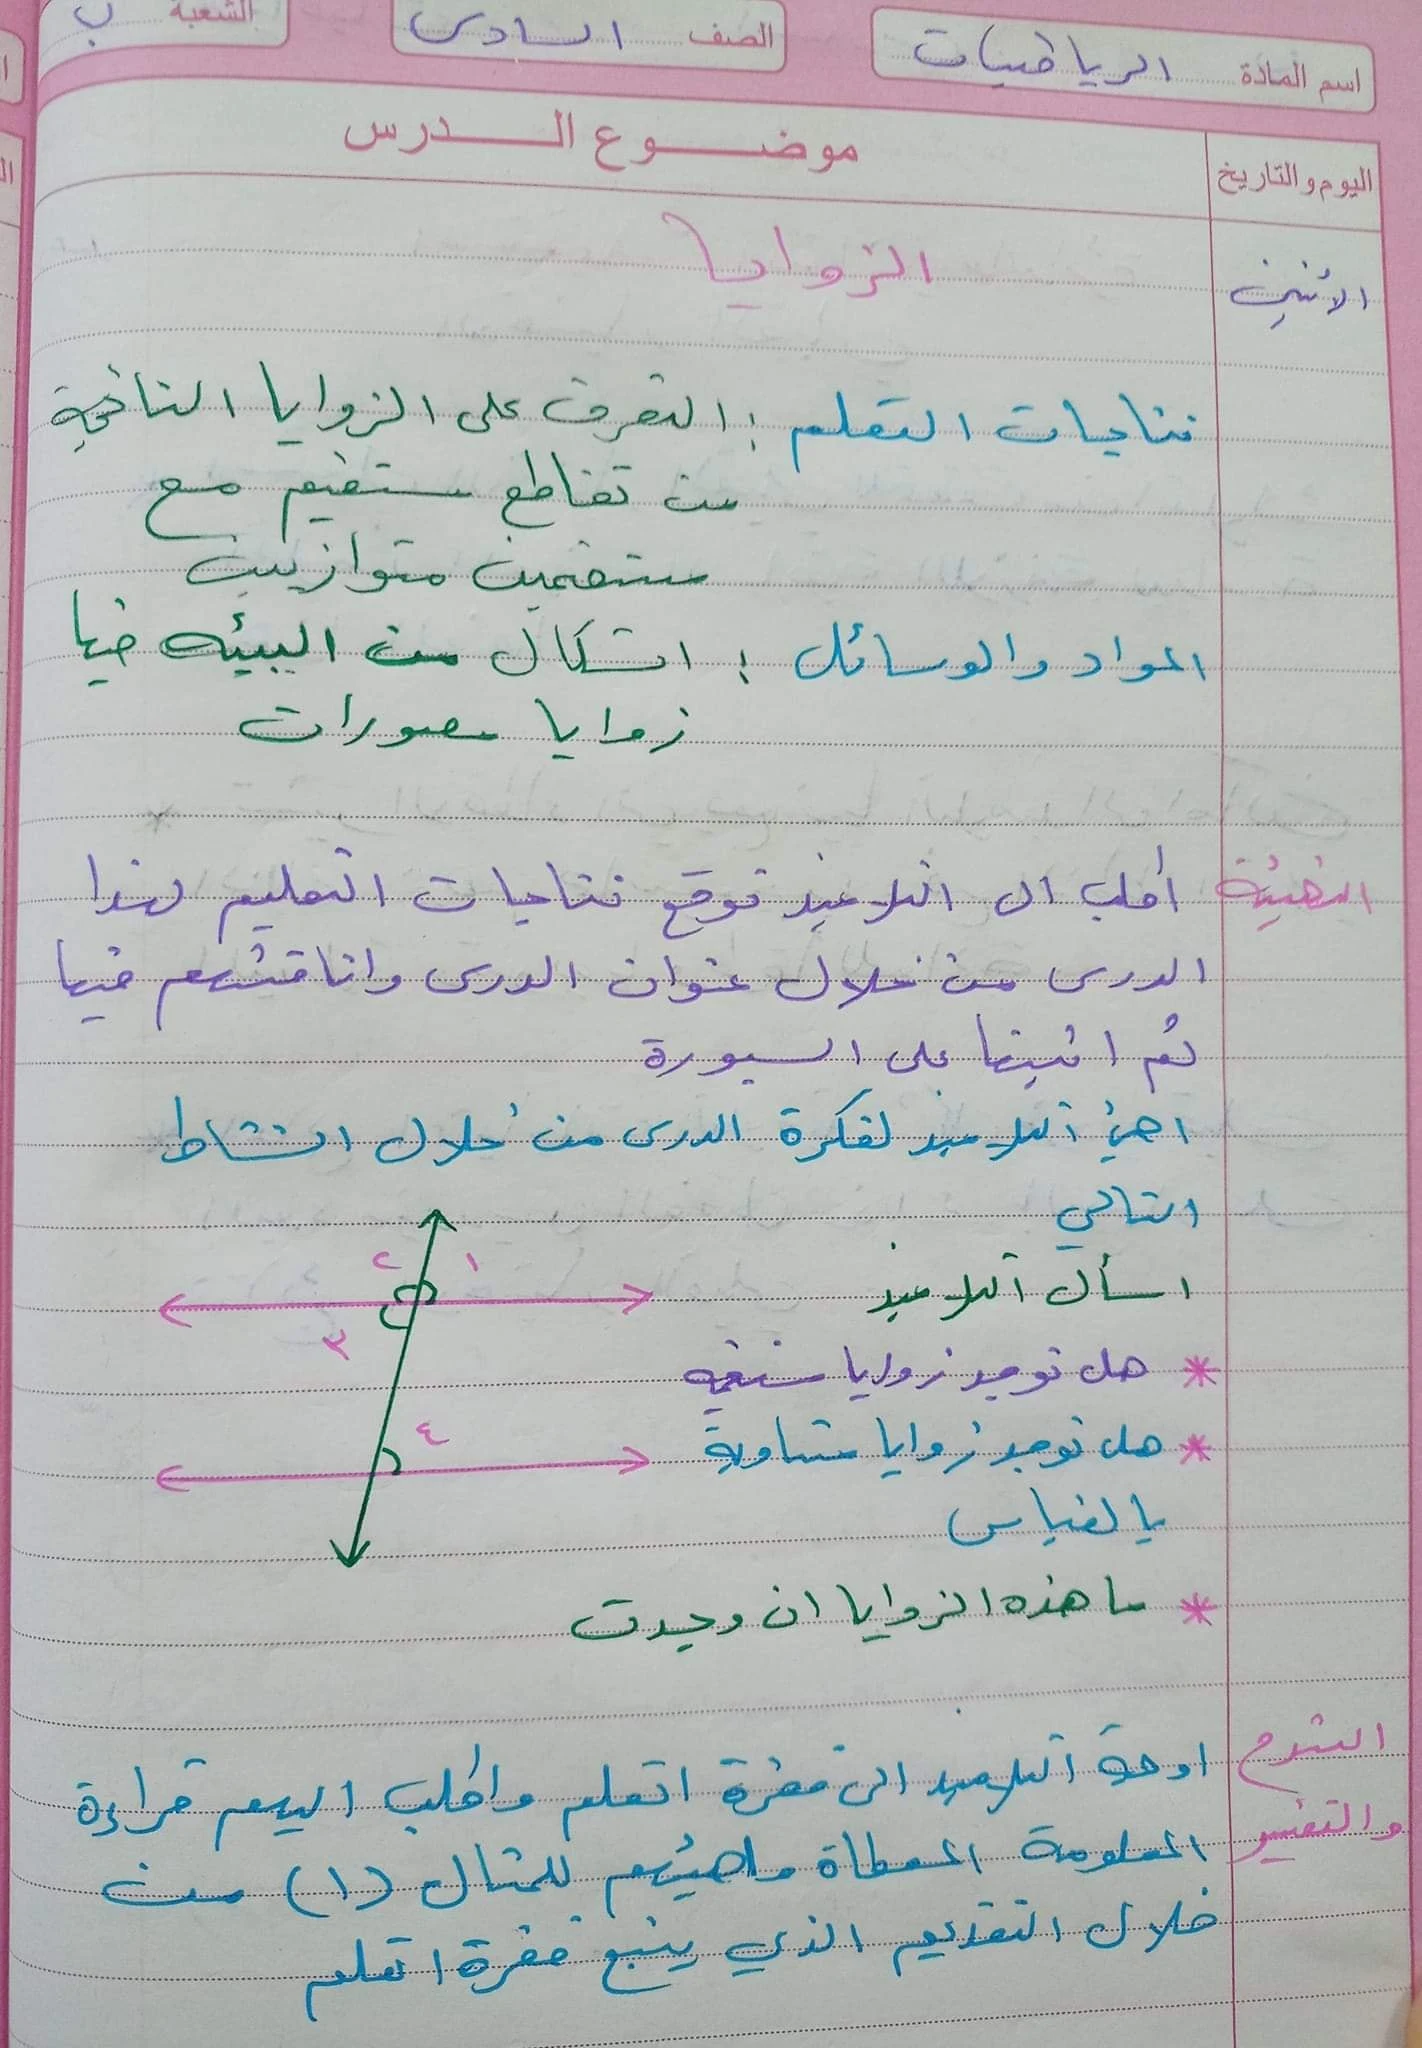 اسم المادة الرياضيات الصف السادس الشعبة ب
اليوم والتاريخ موضوع الدرس
الاثنين الزوايا
نتاجات التعلم : التعرف على الزوايا الناتجة
من تقاطع مستقيم مع
مستقيمين متوازيين
المواد والوسائل : اشكال من البيئه فيها
زوايا مصورات
التهيئة أطلب الى التلاميذ توقع نتاجات التعليم لهذا
الدرس من خلال عنوان الدرس واناقشهم فيها
ثم اثبتها على السبورة
اهيئ التلاميذ لفكرة الدرس من خلال النشاط
التالي
٢ ١
اسأل التلاميذ
٣
* هل توجد زوايا مستقيمة
٤
* هل توجد زوايا متساوية
بالقياس
* ما هذه الزوايا ان وجدت
الشرح
والتفسير
اوجه التلاميذ الى فقرة اتعلم واطلب اليهم قراءة
المعلومة المعطاة واهيئهم للمثال (١) من
خلال التقديم الذي يتبع فقرة اتعلم